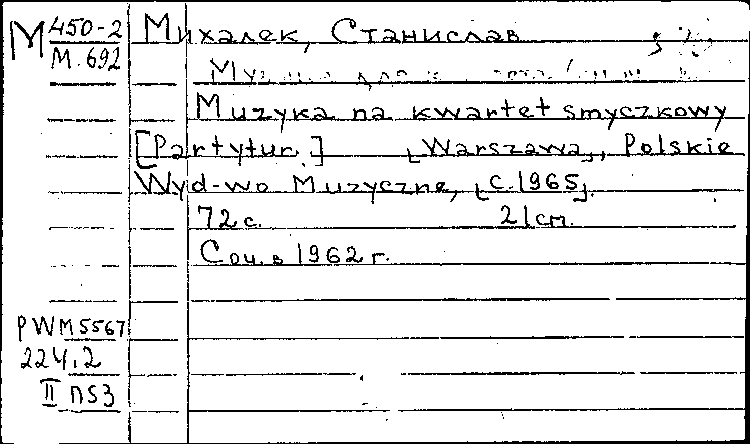 М 450-2 Михалек, Станислав
М. 692
Muzyka na kwartet smyczkowy
[Partytur.] [Warszawa], Polskie
Wyd-wo Muzyczne, [c. 1965].
72 с. 21 см.
Соч. в 1962 г.
PWM 5567
224,2
II п53